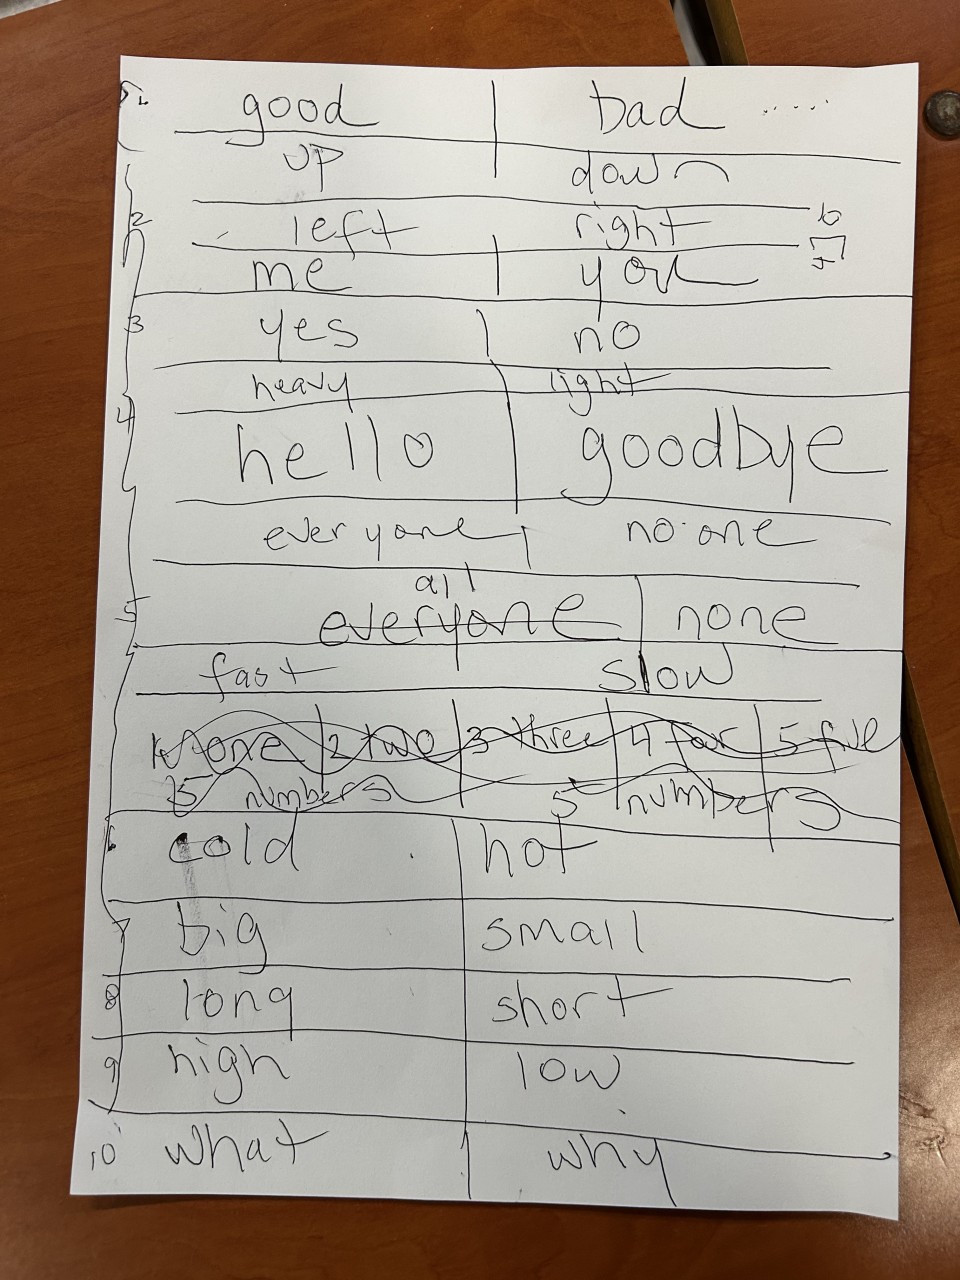 1. good | bad .....
up down
2 left right
me | you
3 yes | no
heavy light
4 hello | goodbye
everyone | no one
all
5 everyone | none
fast slow
1 one | 2 two | 3 three | 4 four | 5 five
5 numbers 5 numbers
6 cold | hot
7 big small
8 long short
9 high low
10 what why